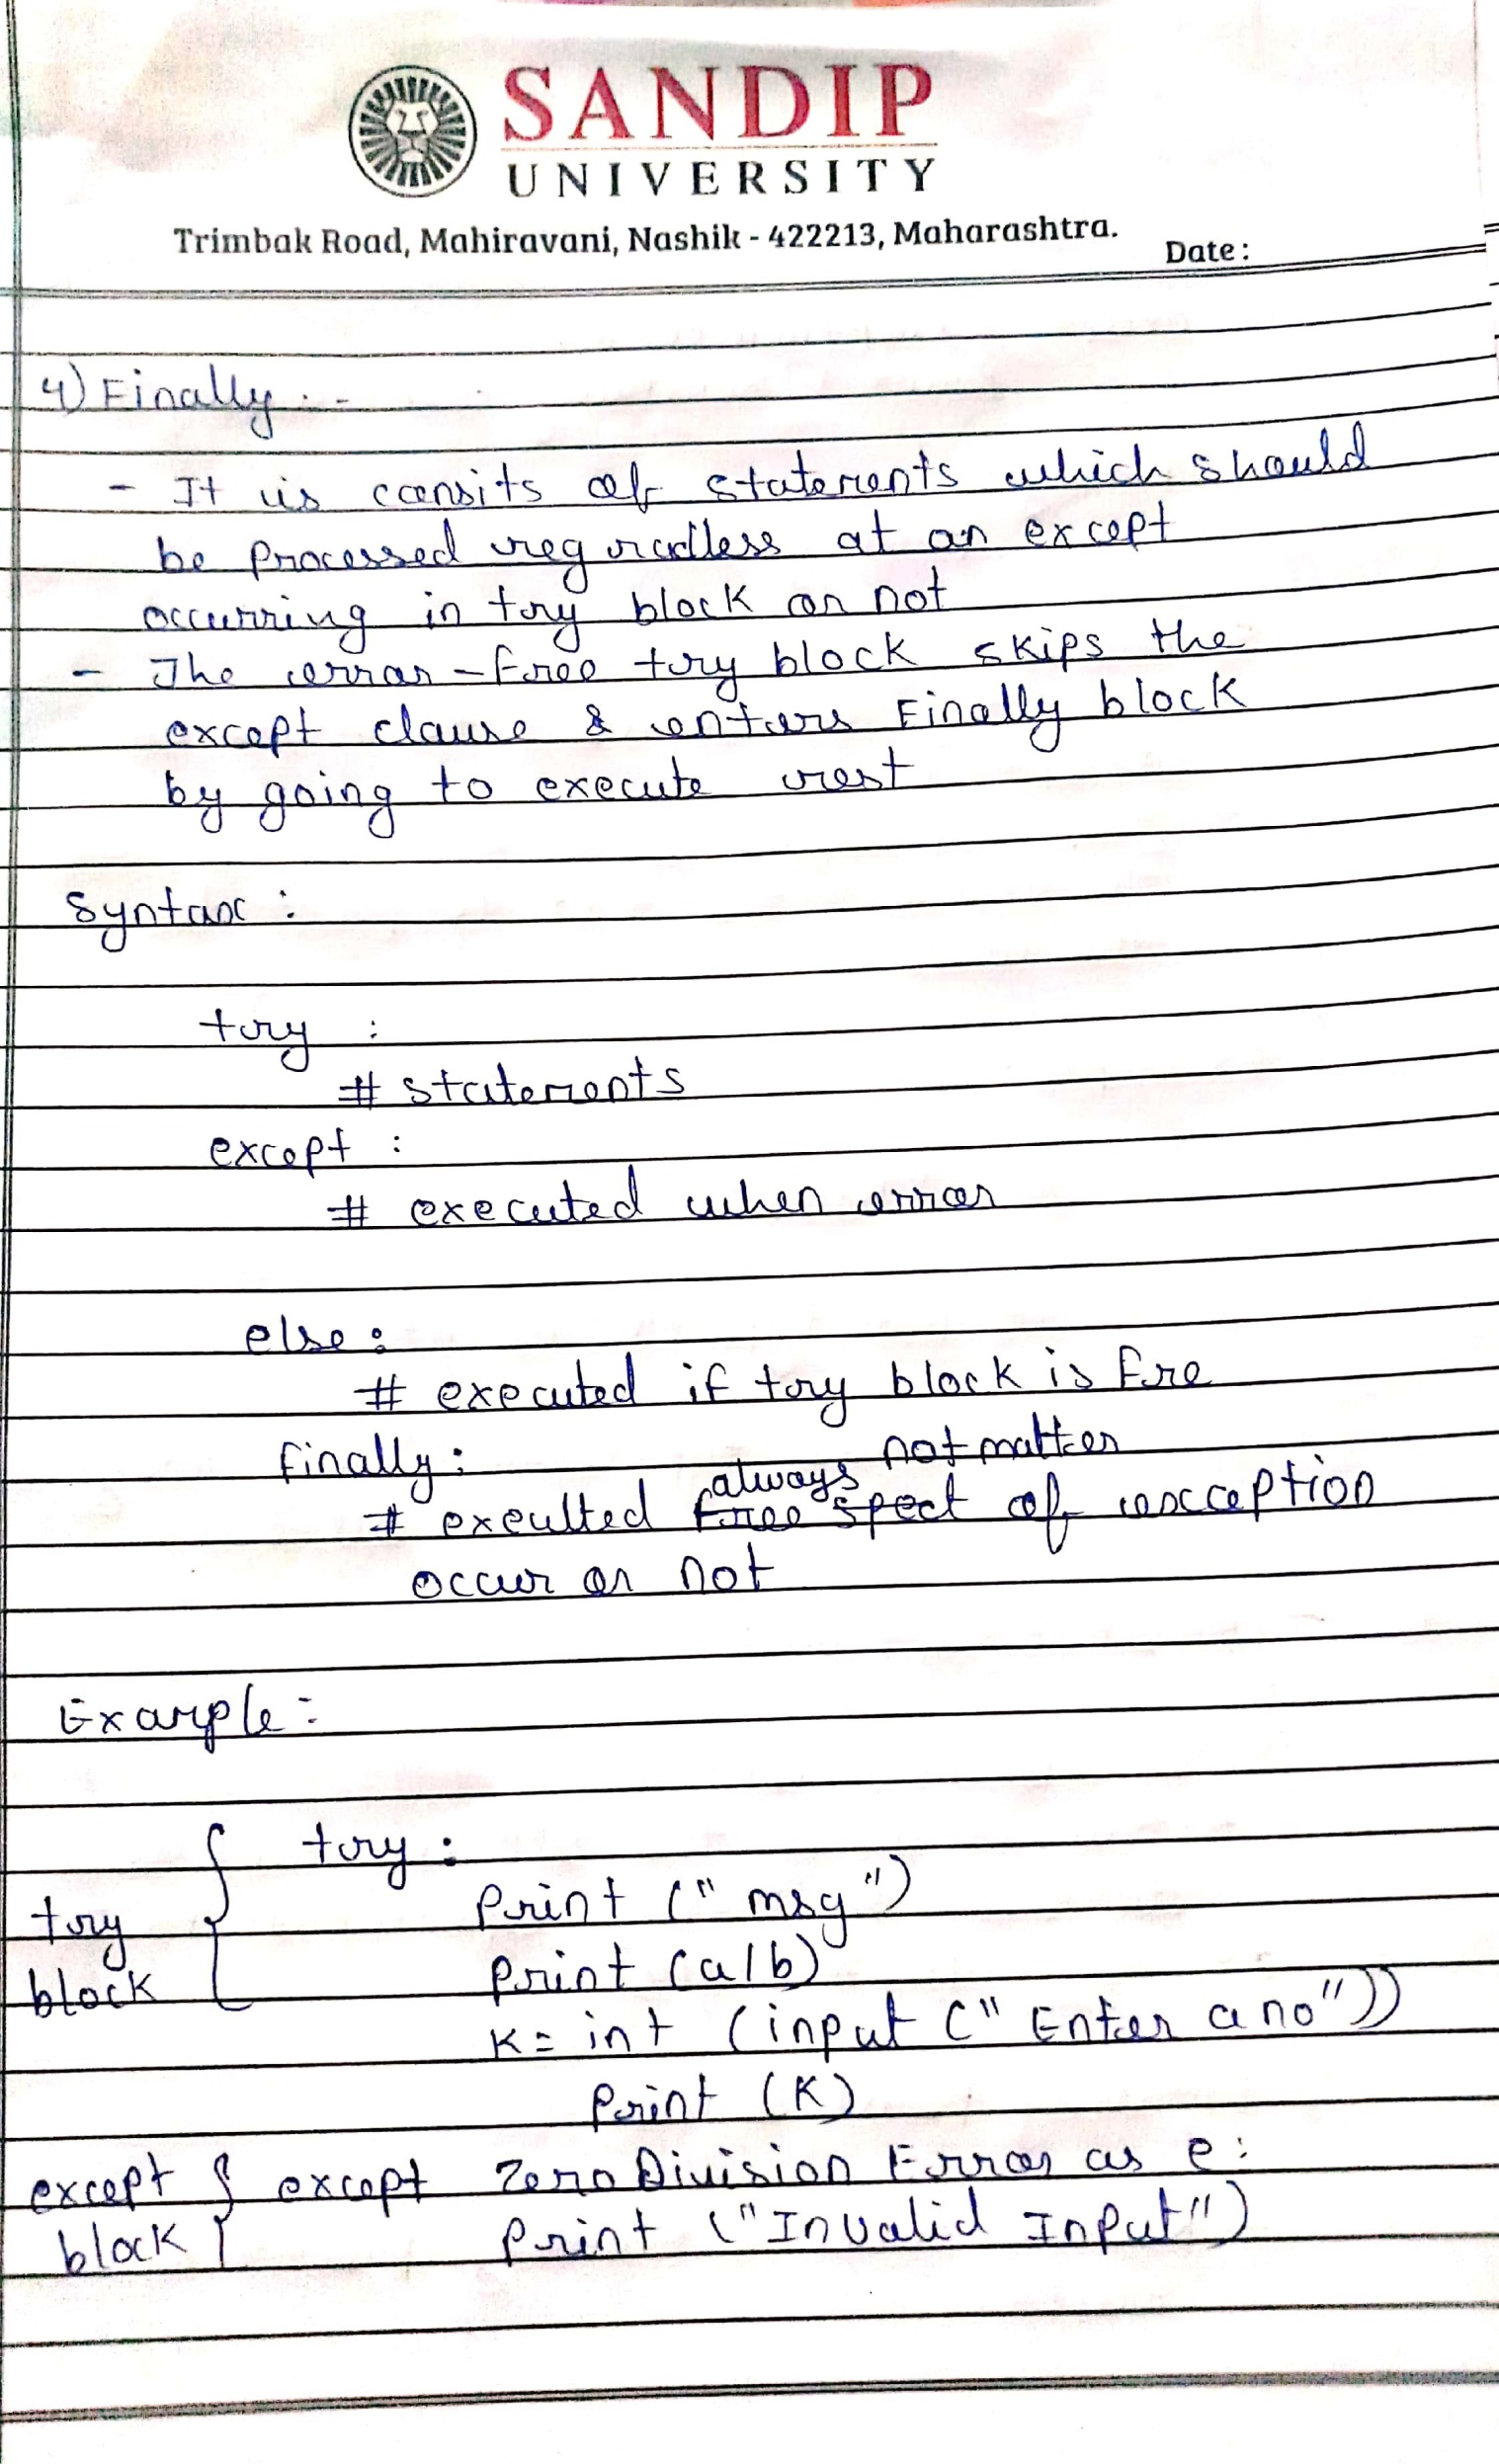 SANDIP
UNIVERSITY
Trimbak Road, Mahiravani, Nashik - 422213, Maharashtra.
Date :
4) Finally :-
- It is consits of statements which should
be processed regradless at an except
occurring in try block or not
- The error-free try block skips the
except clause & enters Finally block
by going to execute rest
Syntax :
try :
# statements
except :
# executed when error
else :
# executed if try block is fre
finally :
always not matter
# exeulted free spect of exception
occur or not
Example :
try :
print ("msg")
try block
print (a/b)
K = int (input ("Enter a no"))
print (K)
except block
except ZeroDivision Error as e :
print ("Invalid Input")